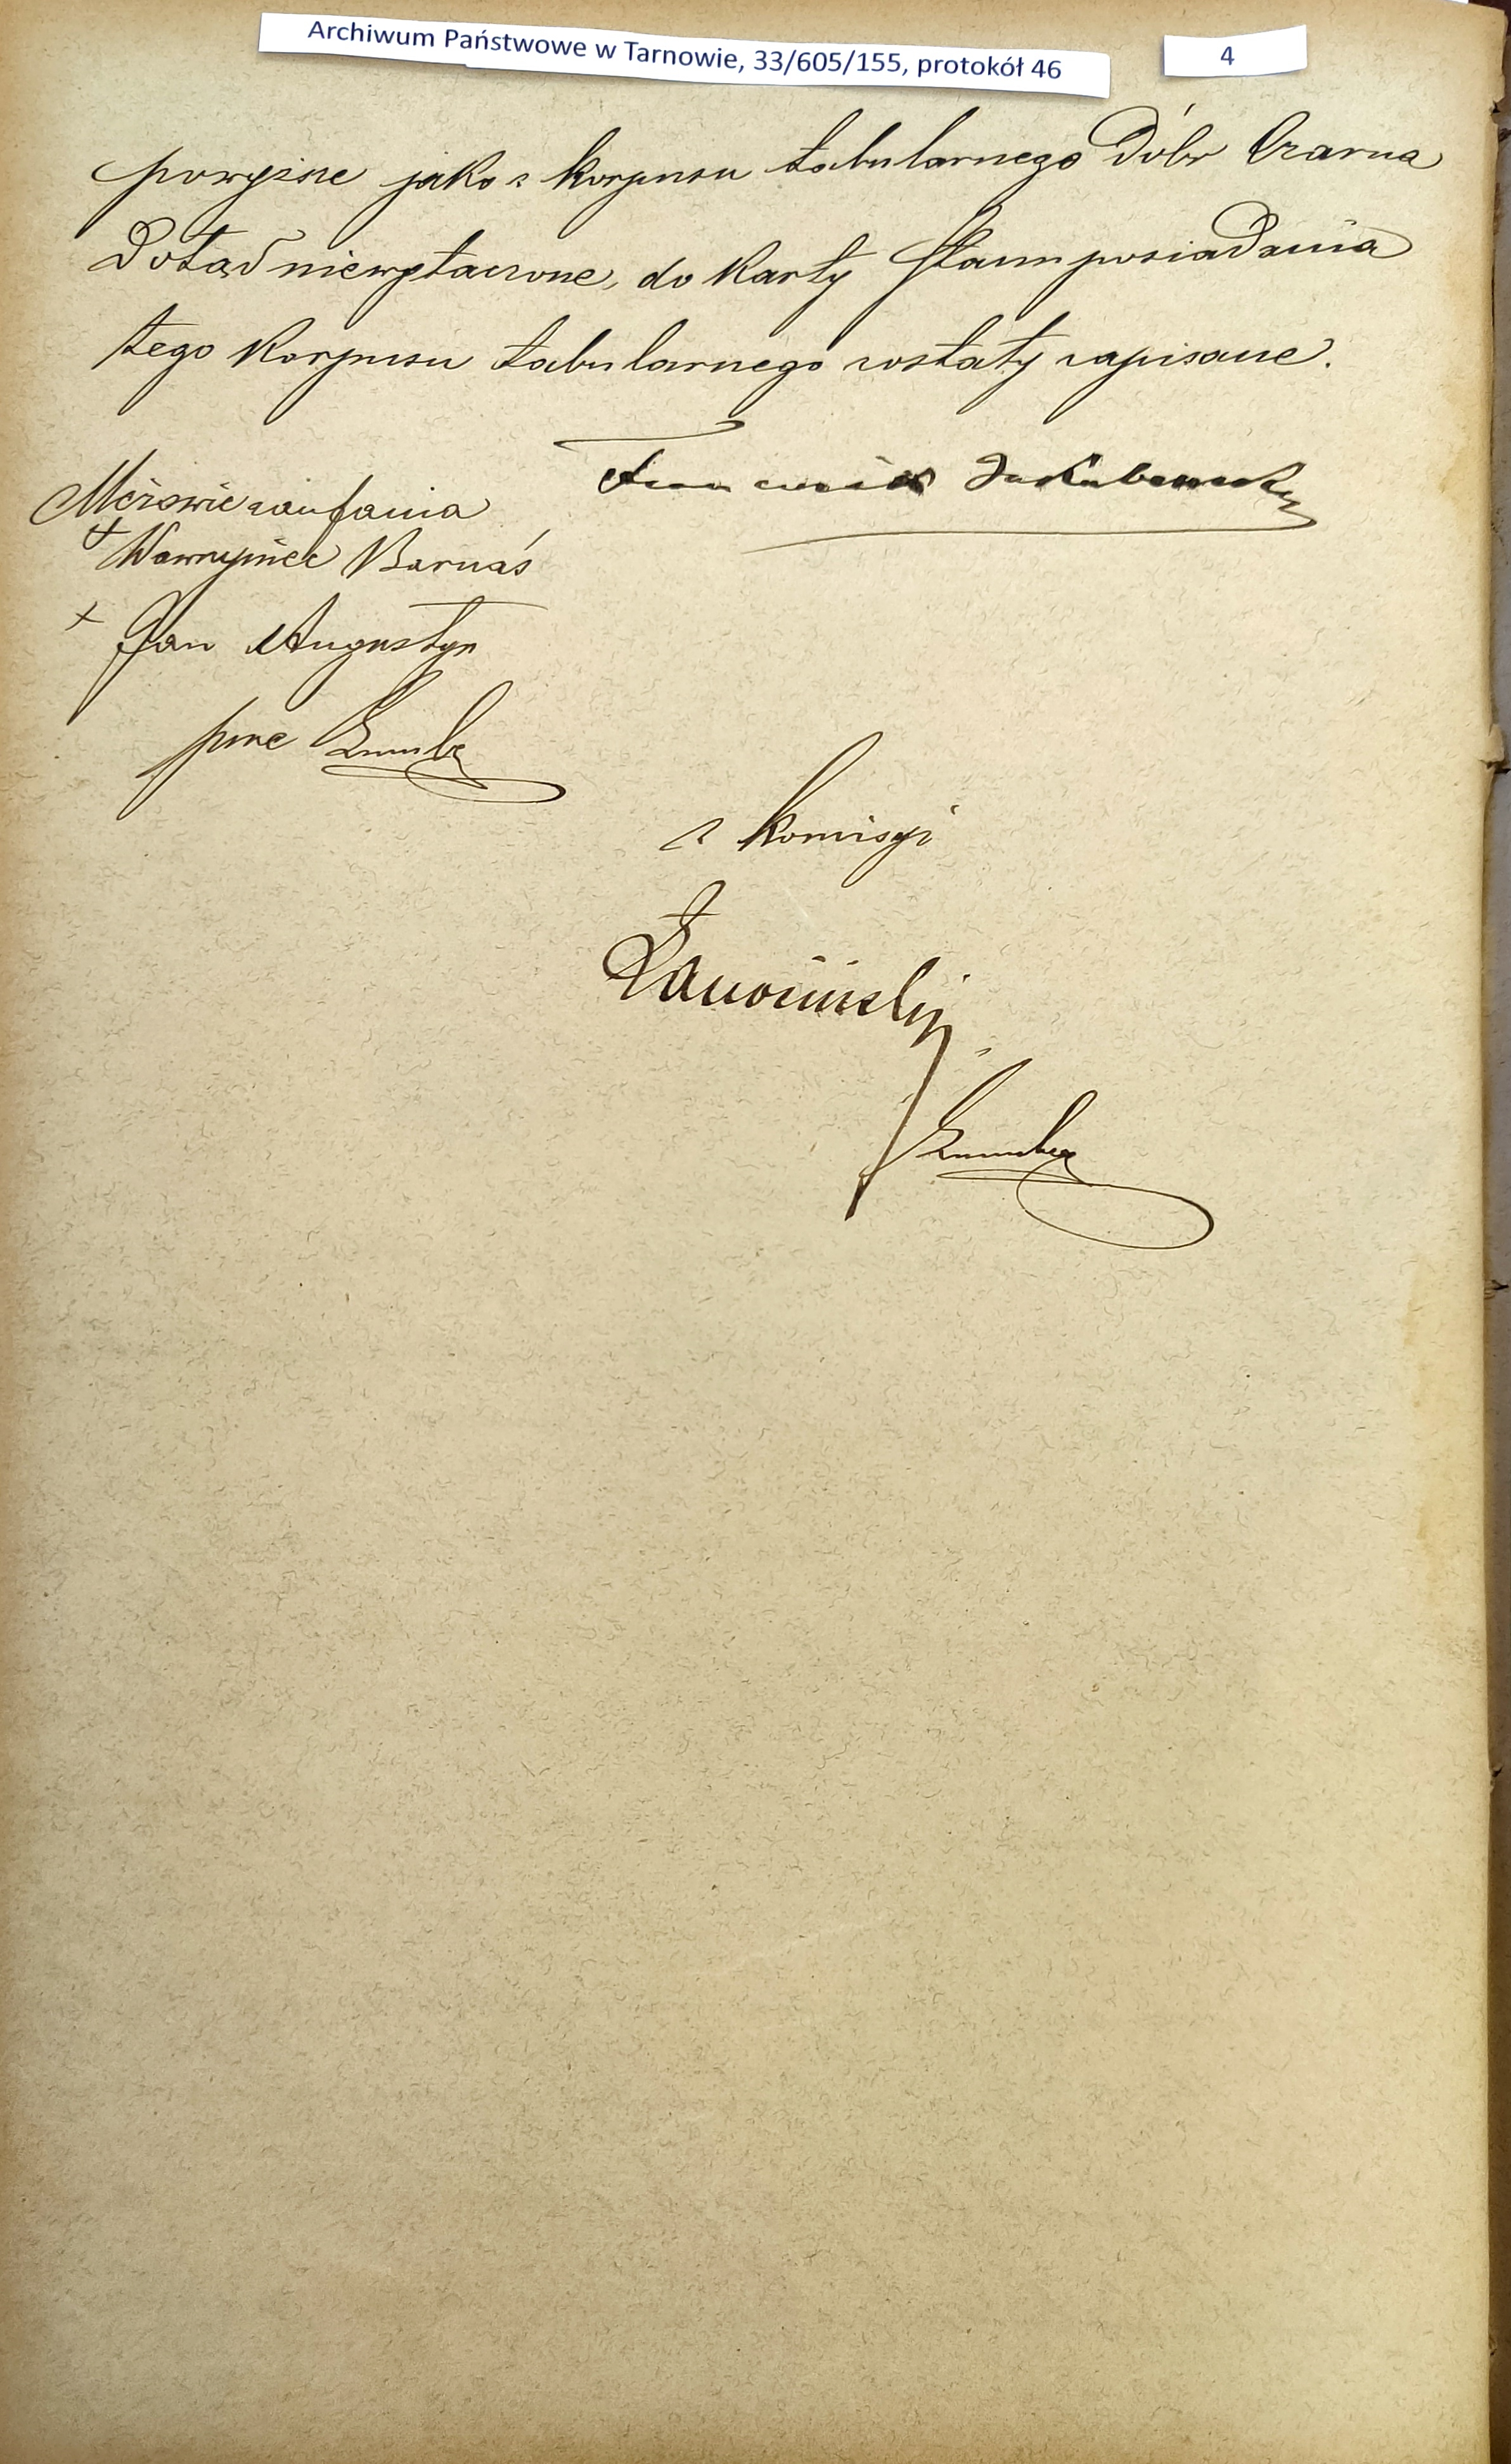 Archiwum Państwowe w Tarnowie, 33/605/155, protokół 46
4
powyższe jako z korpusu tabularnego Dóbr Czarna
Dotąd niewyłączone, do karty stanu posiadania
tego korpusu tabularnego zostały zapisane.
Franciszek Jakubowski
Mężowie zaufania
+ Wawrzyniec Barnaś
+ Jan Augustyn
prze
z komisyi